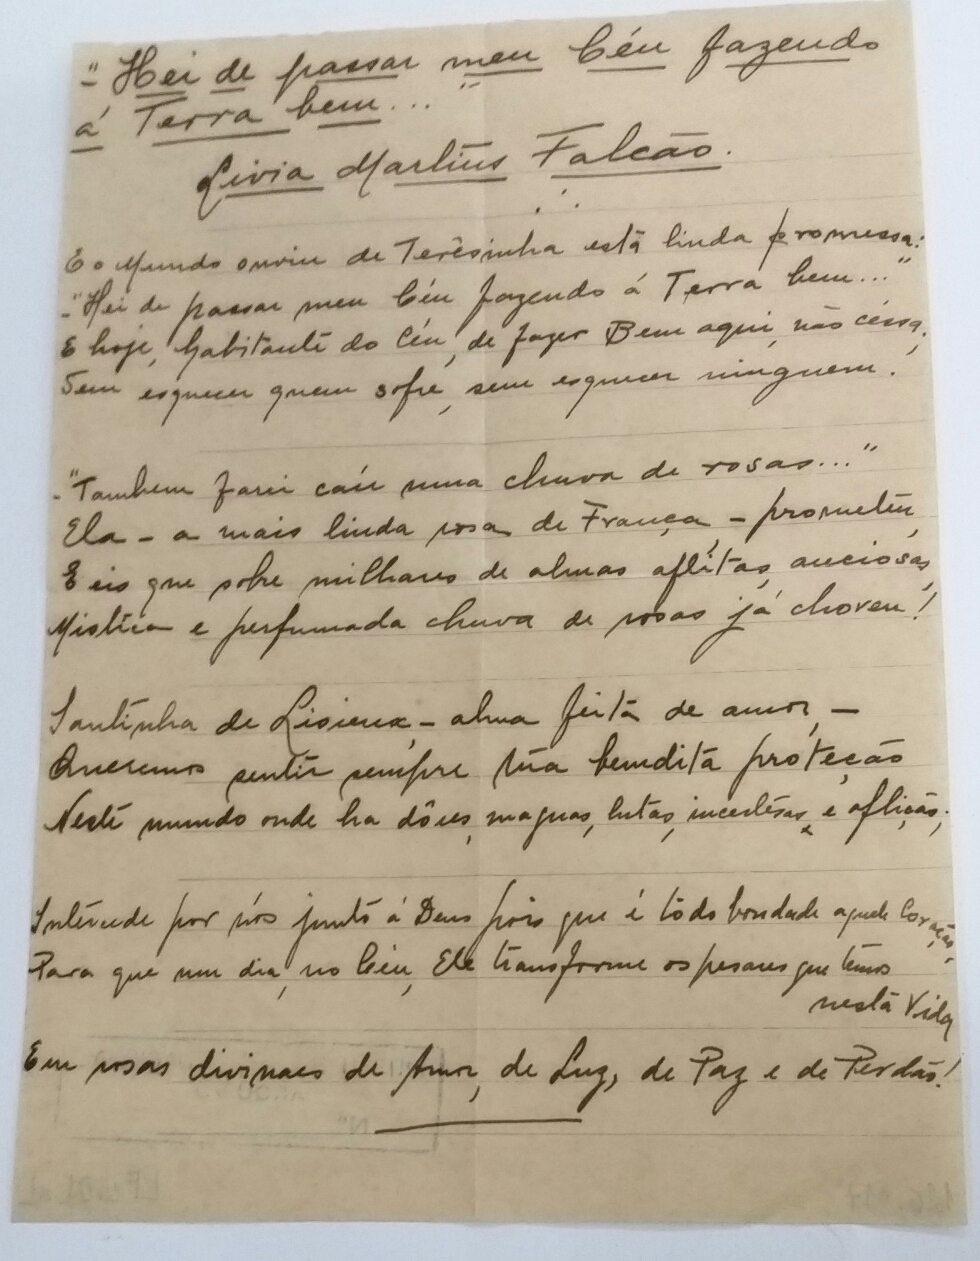 - "Hei de passar meu Céu fazendo
á Terra bem..."
Livia Martins Falcão.
E o Mundo ouviu de Terêsinha está linda promessa:
- "Hei de passar meu Céu fazendo á Terra bem..."
E hoje, habitante do Céu, de fazer Bem aqui, não céssa,
Sem esquecer quem sofre, sem esquecer ninguem.
- "Tambem farei caír uma chuva de rosas..."
Ela - a mais linda rosa de França, - prometeu,
E eis que sobre milhares de almas aflitas, anciosas,
Mistica e perfumada chuva de rosas já choveu!
Santinha de Lisieux, - alma feita de amor, -
Queremos sentir sempre túa bendita proteção
Neste mundo onde ha dôres, maguas, lutas, incertêsas e aflição;
Intercede por nós junto á Deus, pois que é todo bondade aquele Coração,
Para que um dia, no Céu, Ele transforme os pesares que temos
nesta Vida
Em rosas divinaes de Amor, de Luz, de Paz e de Perdão!
Nº